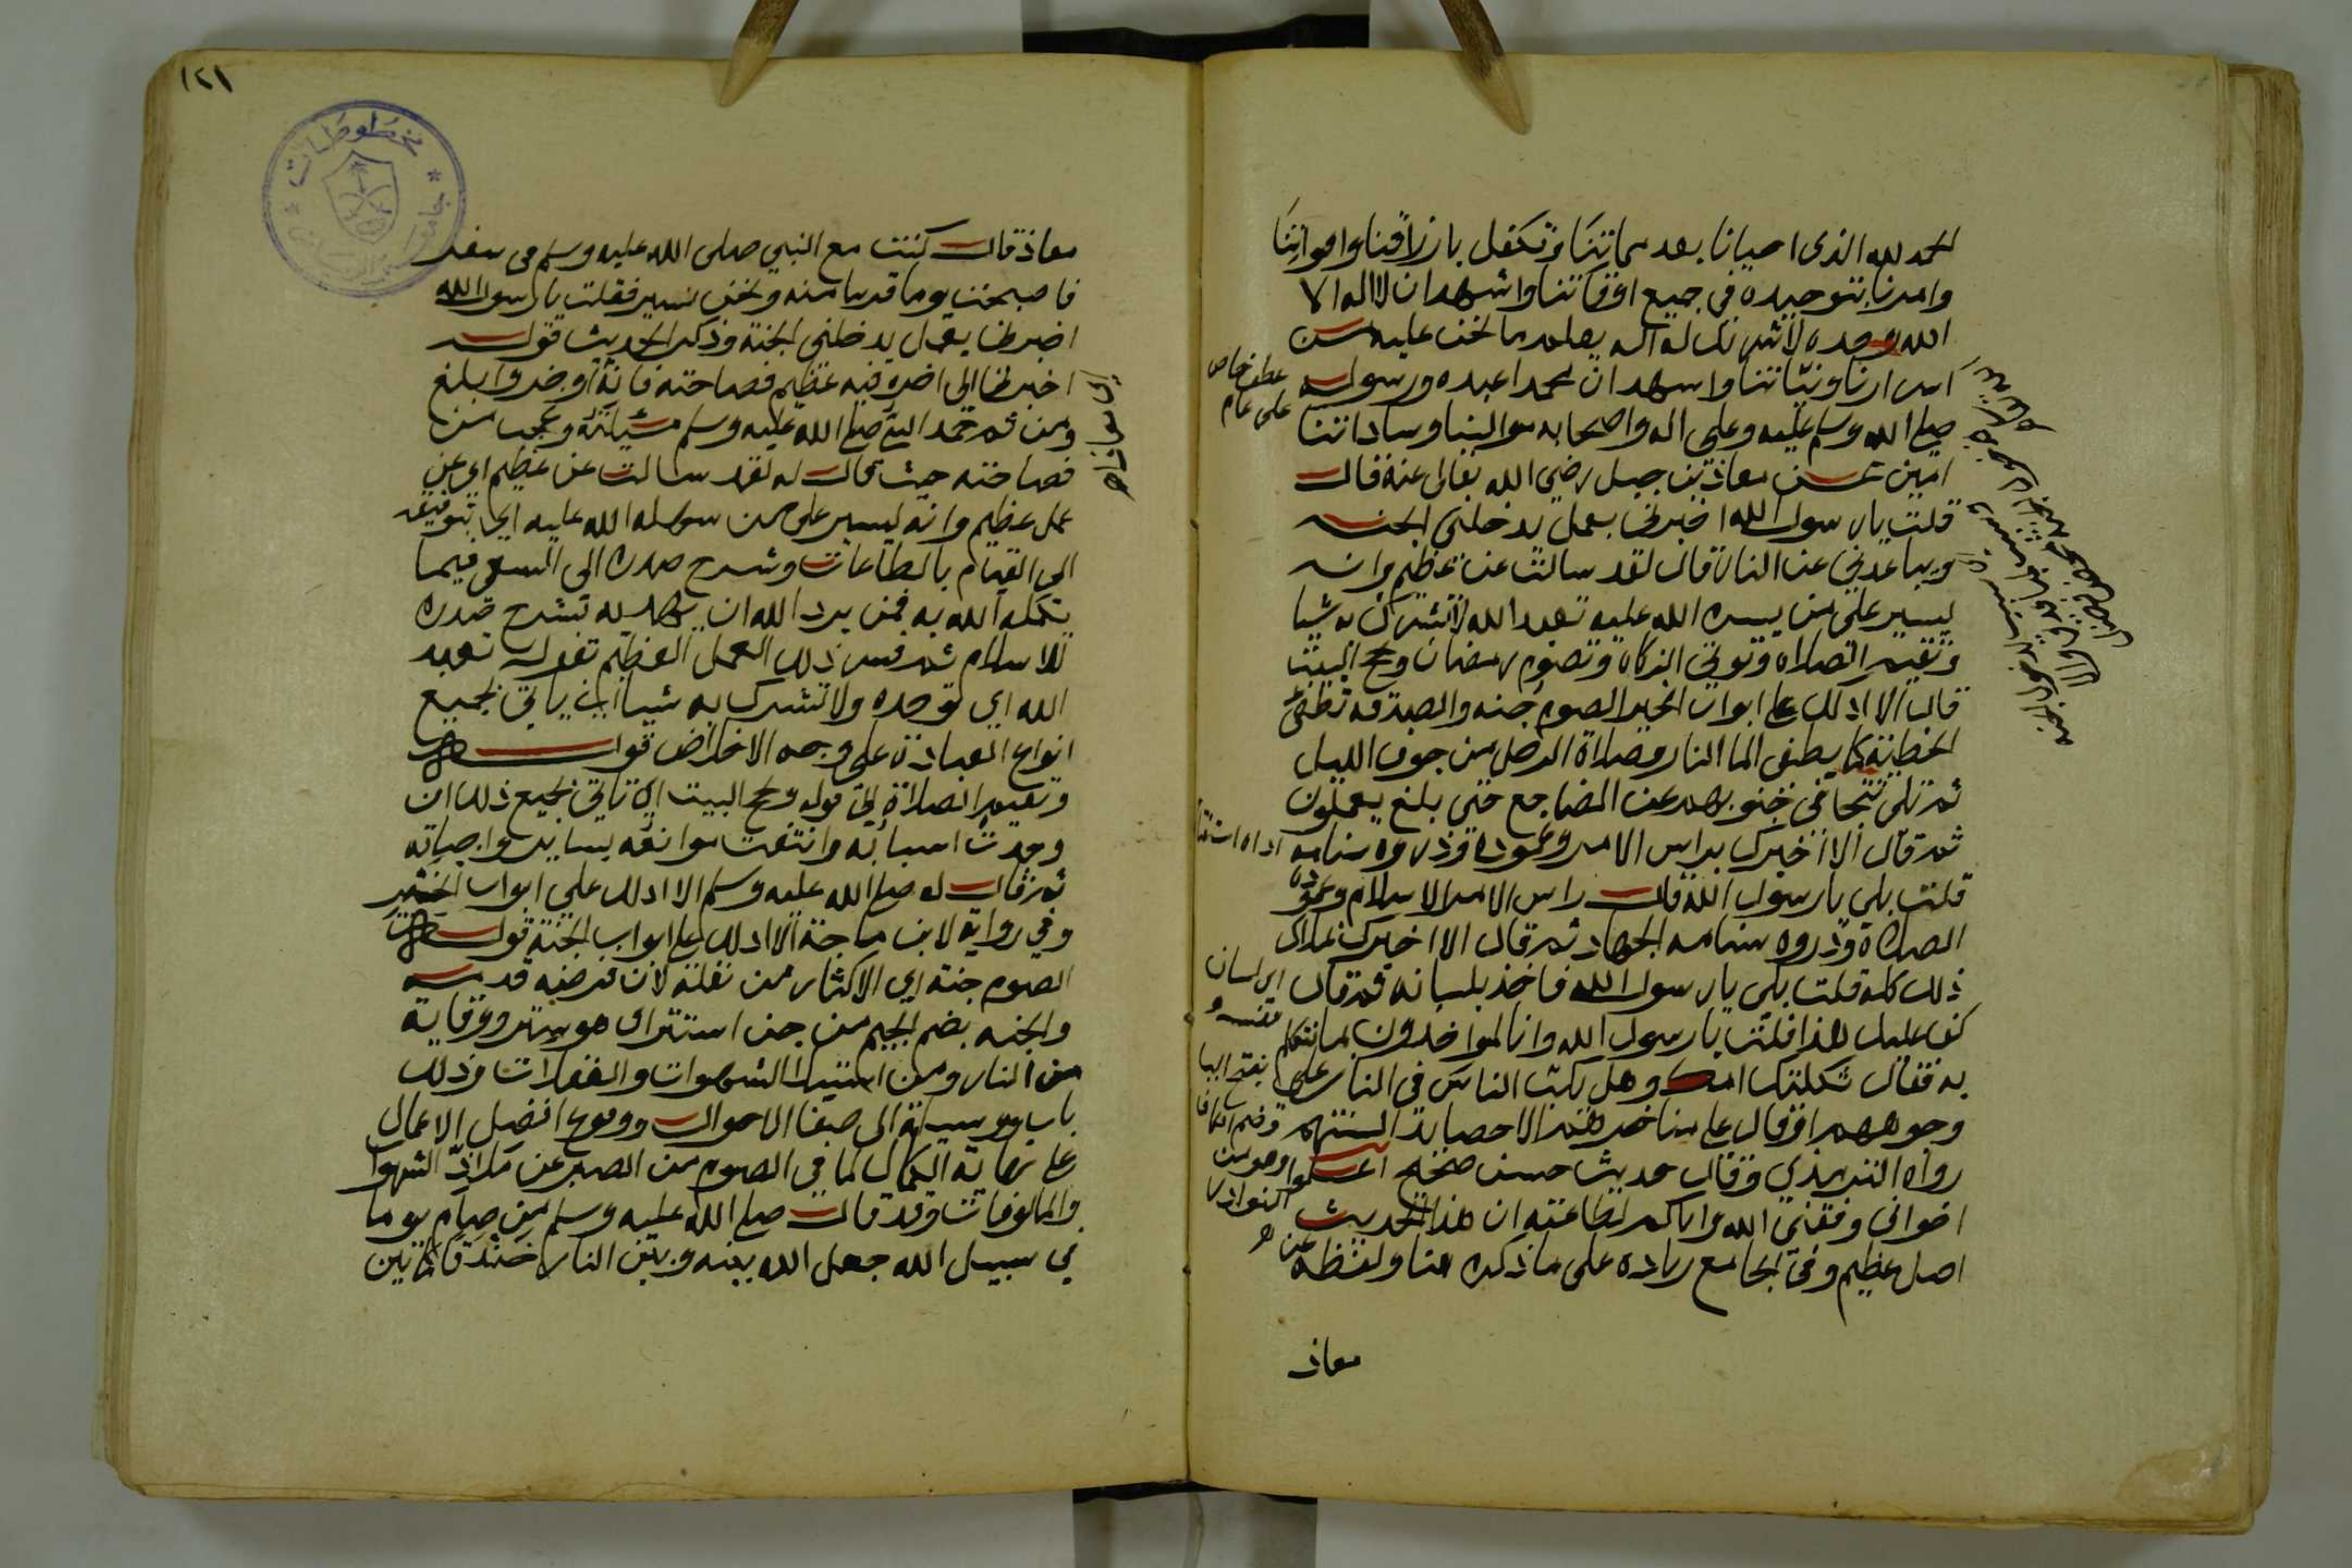 الحمد لله الذي احيانا بعد مماتنا وتكفل بارزاقنا واقواتنا
وامرنا بتوحيده في جميع اوقاتنا واشهد ان لا اله الا
الله وحده لا شريك له اله يعلم ما نحن عليه من
اسرارنا ونياتنا واشهد ان محمدا عبده ورسوله
صلى الله وسلم عليه وعلى اله واصحابه موالينا وساداتنا
امين عن معاذ بن جبل رضي الله تعالى عنه قال
قلت يا رسول الله اخبرني بعمل يدخلني الجنه
ويباعدني عن النار قال لقد سالت عن عظيم وانه
ليسير على من يسره الله عليه تعبد الله لا تشرك به شيا
وتقيم الصلاه وتوتي الزكاة وتصوم رمضان وتحج البيت
قال الا ادلك على ابواب الخير الصوم جنه والصدقه تطفئ
الخطيئة كما يطفي الما النار وصلاة الرجل من جوف الليل
ثم تلى تتجافى جنوبهم عن المضاجع حتى بلغ يعملون
ثم قال الا اخبرك براس الامر وعموده وذروه سنامه
قلت بلى يا رسول الله قال راس الامر الاسلام وعموده
الصلاة وذروه سنامه الجهاد ثم قال الا اخبرك بملاك
ذلك كله قلت بلى يا رسول الله فاخذ بلسانه ثم قال
كف عليك هذا قلت يا رسول الله وانا لمواخذون بما نتكلم
به فقال ثكلتك امك وهل يكب الناس في النار على
وجوههم او قال على مناخرهم الا حصايد السنتهم
رواه الترمذي وقال حديث حسن صحيح اعلموا
اخواني وفقني الله واياكم لطاعته ان هذا الحديث
اصل عظيم وفي الجامع زياده على ما ذكره هنا ولفظه عن
معاذ
عطف خاص
على عام
اي لسان
نفسه
بفتح اليا
وضم الكاف
وهو من
النوادر
معاذ قال كنت مع النبي صلى الله عليه وسلم في سفر
فاصبحت يوما قريبا منه ونحن نسير فقلت يا رسول الله
اخبرني بعمل يدخلني الجنة وذكر الحديث قوله
اخبرني الى اخره فيه عظيم فصاحته فانه اوجز وابلغ
ومن ثم حمد النبي صلى الله عليه وسلم مسئلته وعجب من
فصاحته حيث قال له لقد سالت عن عظيم اي عن
عمل عظيم وانه ليسير على من سهله الله عليه اي بتوفيقه
الى القيام بالطاعات وشرح صدره الى السعي فيما
يكمله الله به فمن يرد الله ان يهديه يشرح صدره
للاسلام ثم فسر ذلك العمل العظيم بقوله تعبد
الله اي توحده ولا تشرك به شيا اي ياتي بجميع
انواع العبادة على وجه الاخلاص قوله
وتقيم الصلاة الى قوله وتحج البيت اي تاتي بجميع ذلك ان
وجدت اسبابه وانتفت موانعه بساير واجباته
ثم قال له صلى الله عليه وسلم الا ادلك على ابواب الخير
وفي رواية لابن ماجة الا ادلك على ابواب الجنة قوله
الصوم جنة اي الاكثار من نفله لان فرضه قد
والجنه بضم الجيم من جن استتر اي هو ستر ووقاية
من النار ومن استيلا الشهوات والغفلات وذلك
باب ووسيلة الى صفا الاحوال ووقوع افضل الاعمال
على نهاية الكمال لما في الصوم من الصبر عن ملاذ الشهوات
والمالوفات وقد قال صلى الله عليه وسلم من صام يوما
في سبيل الله جعل الله بينه وبين النار خندقا كما بين
١٢١
مخطوطات